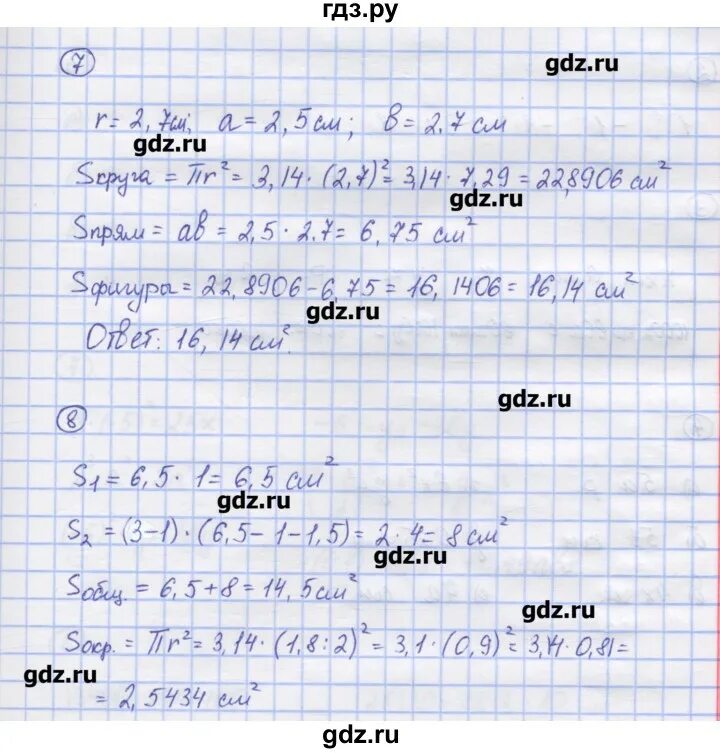 гдз.ру
7
gdz.ru
r = 2,7см; a = 2,5 см; в = 2.7 см
gdz.ru
Sкруга = πr² = 3,14 · (2,7)² = 3,14 · 7,29 = 22,8906 см²
gdz.ru
Sпрям = aв = 2,5 · 2.7 = 6,75 см²
Sфигуры = 22,8906 - 6,75 = 16,1406 = 16,14 см²
gdz.ru
Ответ: 16,14 см².
gdz.ru
8
S1 = 6,5 · 1 = 6,5 см²
gdz.ru
S2 = (3-1) · (6,5 - 1 - 1,5) = 2 · 4 = 8 см²
gdz.ru
Sобщ. = 6,5 + 8 = 14,5 см²
gdz.ru
Sокр. = πr² = 3,14 · (1,8 : 2)² = 3,1 · (0,9)² = 3,14 · 0,81 =
gdz.ru
= 2,5434 см²
gdz.ru